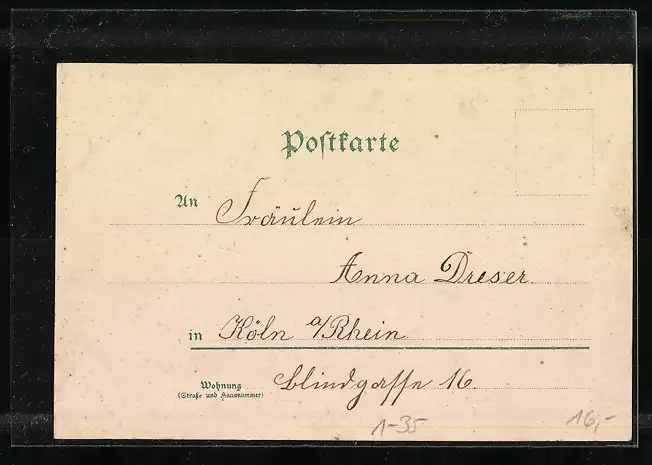 Postkarte
An Fräulein
Anna Dreser.
in Köln a/Rhein
Wohnung Blindgasse 16.
(Straße und Hausnummer)
1-35
16,-